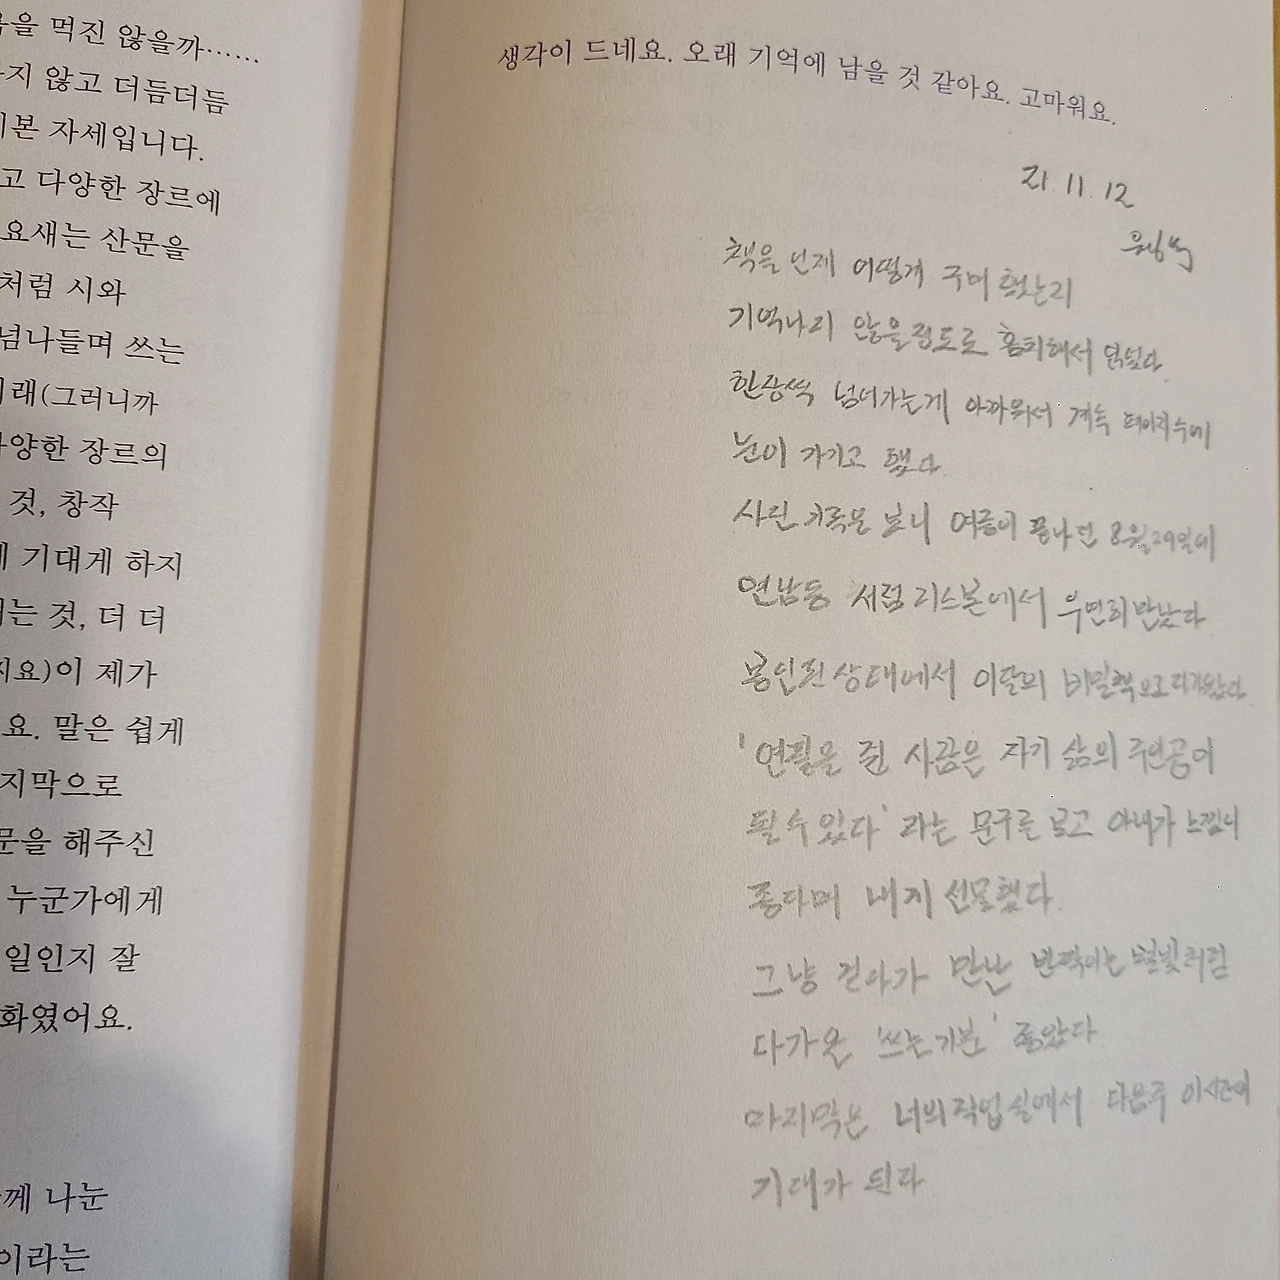 을 먹진 않을까……
지 않고 더듬더듬
본 자세입니다.
고 다양한 장르에
요새는 산문을
처럼 시와
넘나들며 쓰는
래(그러니까
양한 장르의
것, 창작
기대게 하지
는 것, 더 더
지요)이 제가
요. 말은 쉽게
지막으로
문을 해주신
누군가에게
일인지 잘
화였어요.
께 나눈
이라는
생각이 드네요. 오래 기억에 남을 것 같아요. 고마워요.
21. 11. 12
책을 언제 어떻게 구매 했는지
기억나지 않을정도로 훔치해서 읽었다.
한장씩 넘어가는게 아까워서 계속 페이지수에
눈이 가기고 했다.
사진 기록을 보니 여름이 끝나던 8월29일에
연남동 서점 리스본에서 우연히 만났다
봉인된 상태에서 이달의 비밀책으로
'연필을 쥔 사람은 자기 삶의 주인공이
될 수 있다' 라는 문구를 보고 아내가 느낌이
좋다며 내게 선물했다.
그냥 걷다가 만난 반짝이는 별빛처럼
다가온 '쓰는 기분' 좋았다
마지막은 너의 작업실에서 다음주 이시간이
기대가 된다